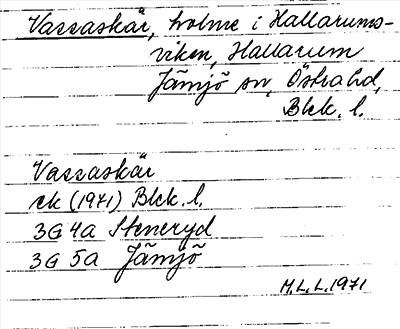 Vassaskär, holme i Hallarums-
viken, Hallarum
Jämjö sn, Östra hd,
Blek. l.
Vassaskär
ek (1971) Blek. l.
3G 4a Steneryd
3G 5a Jämjö
M.L.L. 1971